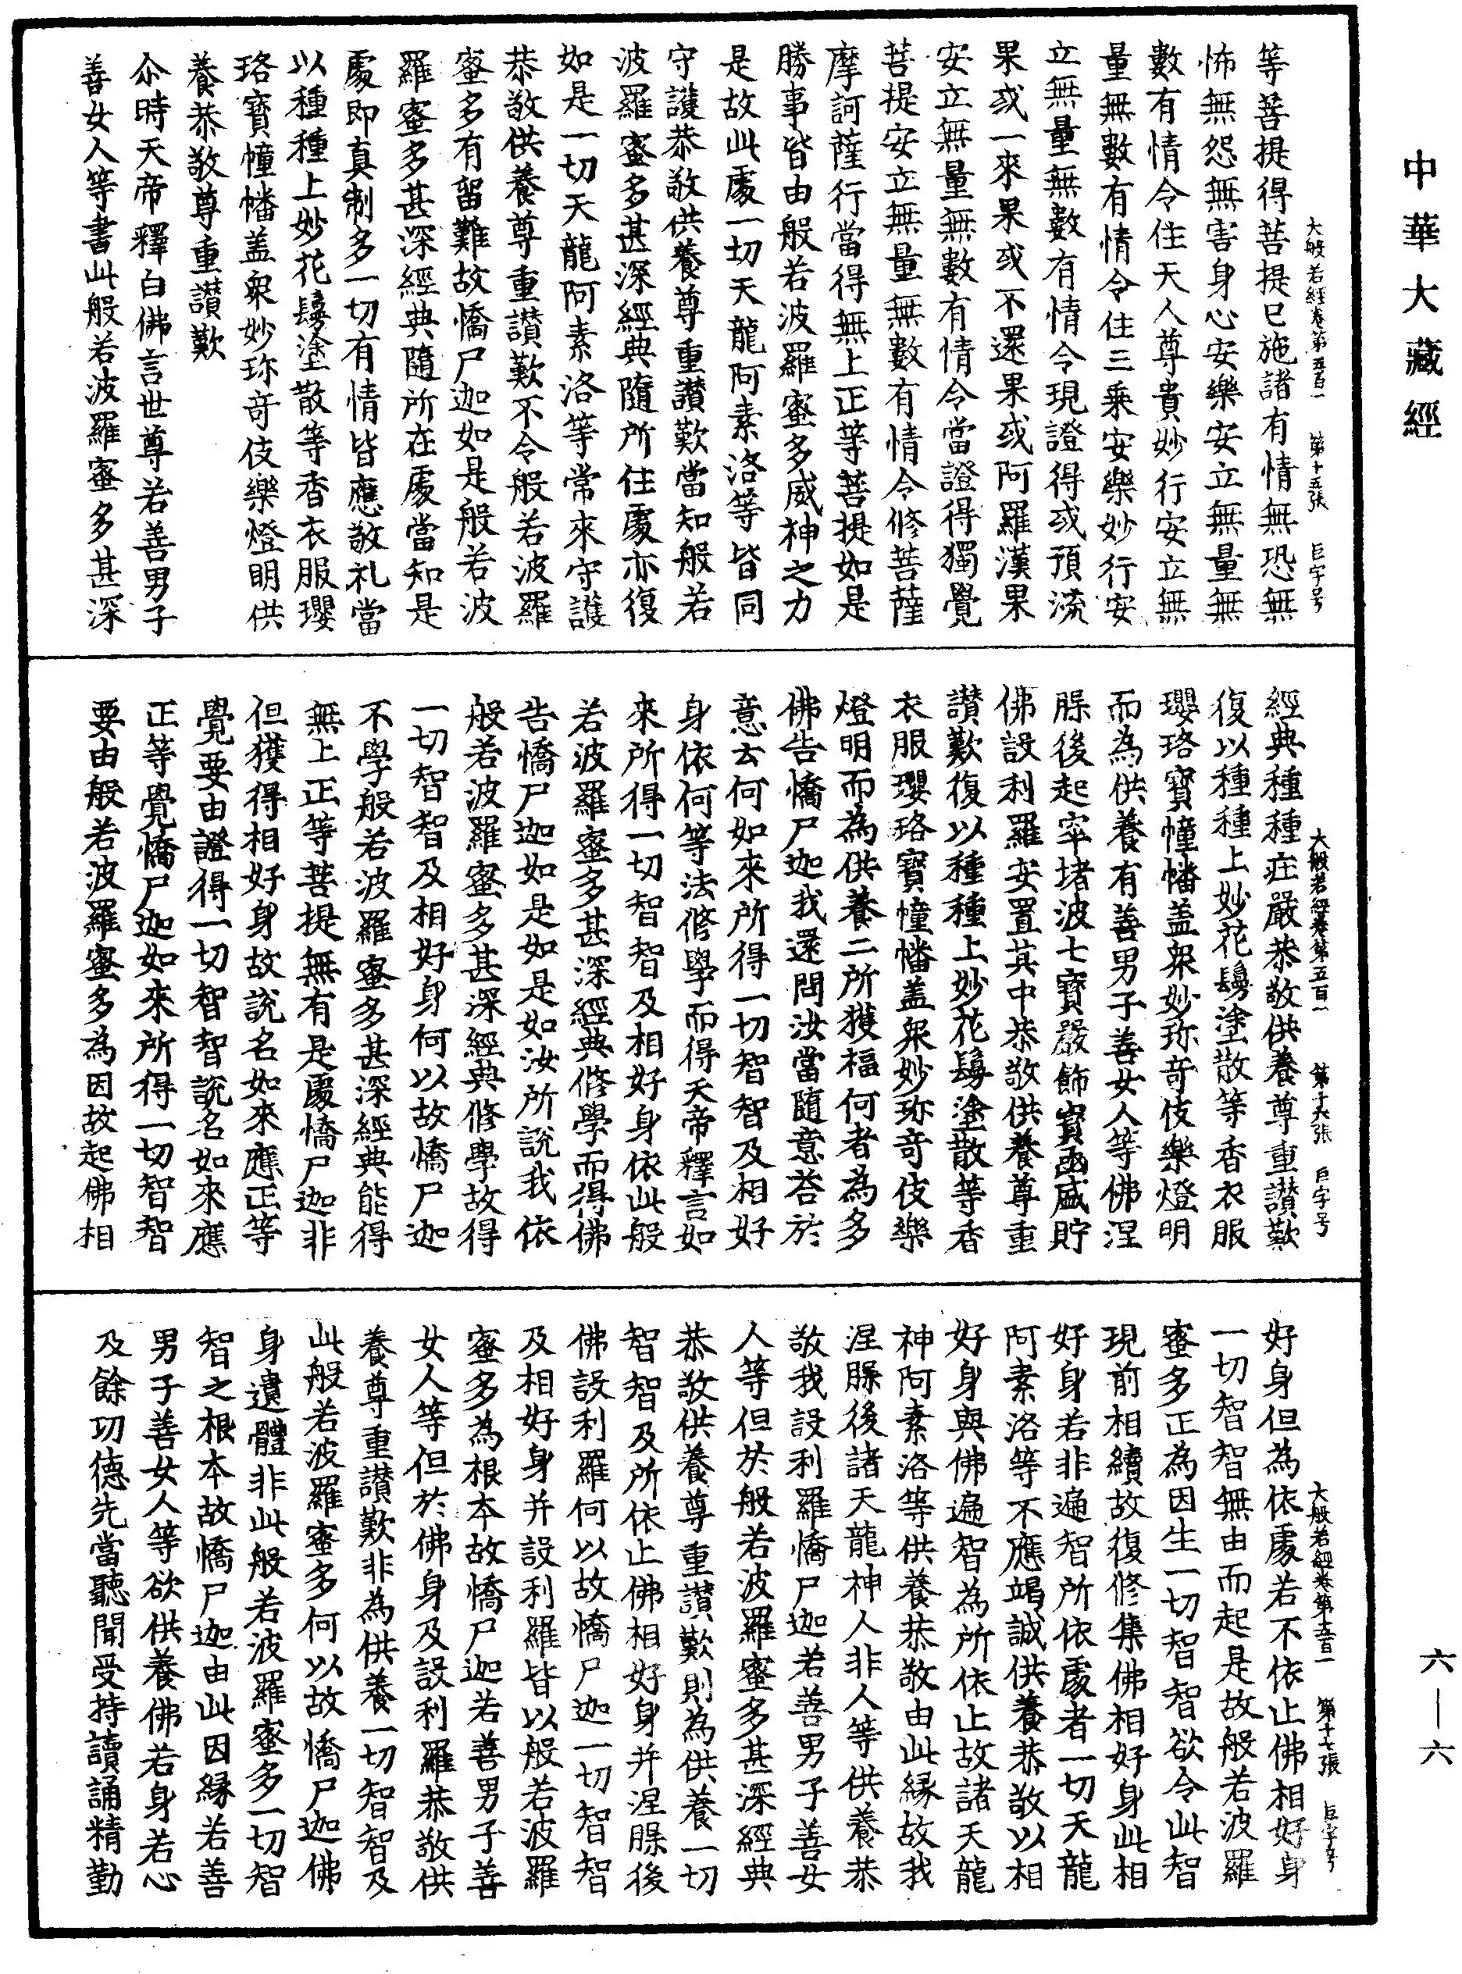 中華大藏經
大般若經卷第五百一　第十五張　巨字号
等菩提得菩提已施諸有情無恐無
怖無怨無害身心安樂安立無量無
數有情令住天人尊貴妙行安立無
量無數有情令住三乘安樂妙行安
立無量無數有情令現證得或預流
果或一來果或不還果或阿羅漢果
安立無量無數有情令當證得獨覺
菩提安立無量無數有情令修菩薩
摩訶薩行當得無上正等菩提如是
勝事皆由般若波羅蜜多威神之力
是故此處一切天龍阿素洛等皆同
守護恭敬供養尊重讚歎當知般若
波羅蜜多甚深經典隨所住處亦復
如是一切天龍阿素洛等常來守護
恭敬供養尊重讚歎不令般若波羅
蜜多有留難故憍尸迦如是般若波
羅蜜多甚深經典隨所在處當知是
處即真制多一切有情皆應敬礼當
以種種上妙花鬘塗散等香衣服瓔
珞寶幢幡盖眾妙珎竒伎樂燈明供
養恭敬尊重讚歎
尒時天帝釋白佛言世尊若善男子
善女人等書此般若波羅蜜多甚深
大般若經卷第五百一　第十六張　巨字号
經典種種莊嚴恭敬供養尊重讚歎
復以種種上妙花鬘塗散等香衣服
瓔珞寶幢幡盖眾妙珎竒伎樂燈明
而為供養有善男子善女人等佛涅
縣後起窣堵波七寶嚴飾寶函盛貯
佛設利羅安置其中恭敬供養尊重
讚歎復以種種上妙花鬘塗散等香
衣服瓔珞寶幢幡盖眾妙珎竒伎樂
燈明而為供養二所獲福何者為多
佛告憍尸迦我還問汝當隨意荅於
意云何如來所得一切智智及相好
身依何等法修學而得天帝釋言如
來所得一切智智及相好身依此般
若波羅蜜多甚深經典修學而得佛
告憍尸迦如是如是如汝所說我依
般若波羅蜜多甚深經典修學故得
一切智智及相好身何以故憍尸迦
不學般若波羅蜜多甚深經典能得
無上正等菩提無有是處憍尸迦非
但獲得相好身故說名如來應正等
覺要由證得一切智智說名如來應
正等覺憍尸迦如來所得一切智智
要由般若波羅蜜多為因故起佛相
大般若經卷第五百一　第十七張　巨字号
好身但為依處若不依止佛相好身
一切智智無由而起是故般若波羅
蜜多正為因生一切智智欲令此智
現前相續故復修集佛相好身此相
好身若非遍智所依處者一切天龍
阿素洛等不應竭誠供養恭敬以相
好身與佛遍智為所依止故諸天龍
神阿素洛等供養恭敬由此緣故我
涅縣後諸天龍神人非人等供養恭
敬我設利羅憍尸迦若善男子善女
人等但於般若波羅蜜多甚深經典
恭敬供養尊重讚歎則為供養一切
智智及所依止佛相好身并涅縣後
佛設利羅何以故憍尸迦一切智智
及相好身并設利羅皆以般若波羅
蜜多為根本故憍尸迦若善男子善
女人等但於佛身及設利羅恭敬供
養尊重讚歎非為供養一切智智及
此般若波羅蜜多何以故憍尸迦佛
身遺體非此般若波羅蜜多一切智
智之根本故憍尸迦由此因緣若善
男子善女人等欲供養佛若身若心
及餘功德先當聽聞受持讀誦精勤
六—六